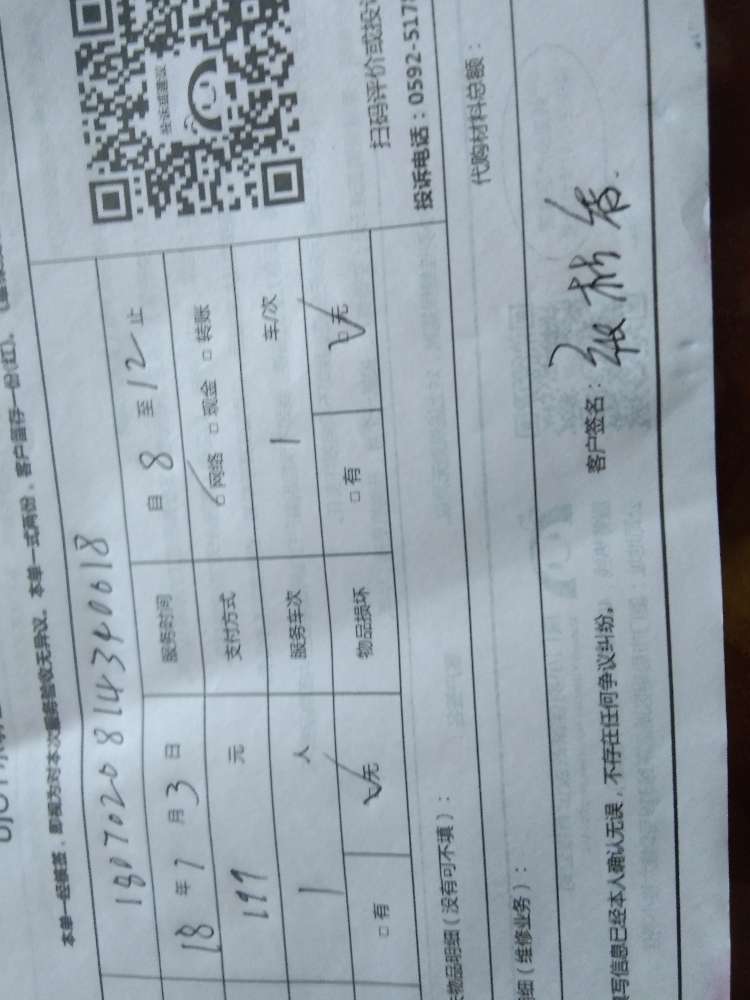 本单一经核签，即视为对本次服务验收无异议。本单一式两份，客户留存一份(红)。
180702081434 0618
18年7月3日 服务时间 自8至12止
199元 支付方式 网络 现金 转账
1人 服务车次 1 车/次
有 无 物品损坏 有 无
投诉或建议
扫码评价或投
投诉电话：0592-517
物品明细（没有可不填）：
代购材料总额：
细（维修业务）：
写信息已经本人确认无误，不存在任何争议纠纷。
客户签名：